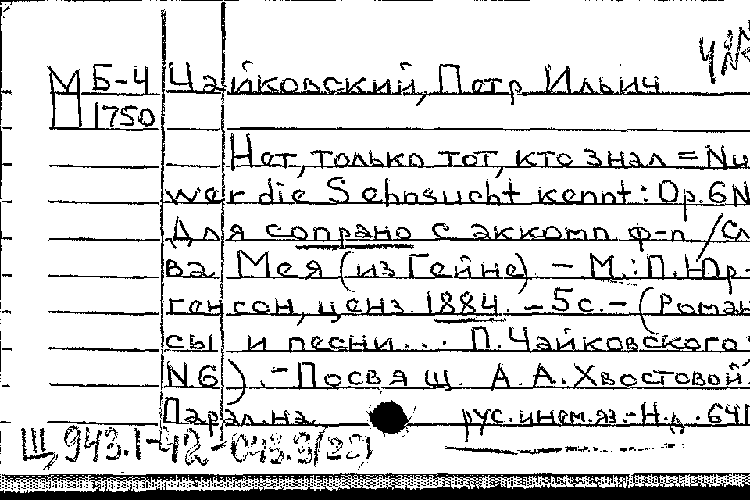 М Б-4 Чайковский, Петр Ильич
П 1750
Нет, только тот, кто знал = Nu
wer die Sehnsucht kennt: Op. 6 N
Для сопрано с аккомп. ф-п /Сл
ва Мея (из Гейне). – М.: П. Юр-
генсон, ценз. 1884. – 5 с. – (Роман
сы и песни... П. Чайковского;
N6). – Посвящ. А. А. Хвостовой.
Парал. на рус. и нем. яз. – Н.д. 641
Щ 943.1-42